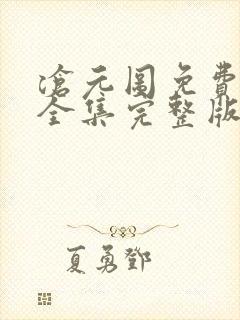 滄元圖免費
全集完整版
夏勇鄧